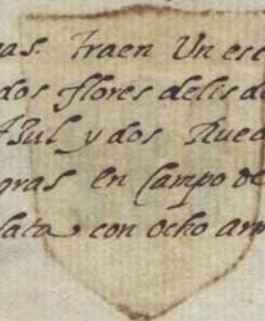 as. traen Un esc
dos flores delis de
Asul y dos Rued
gras en Campo de
lata con ocho arm